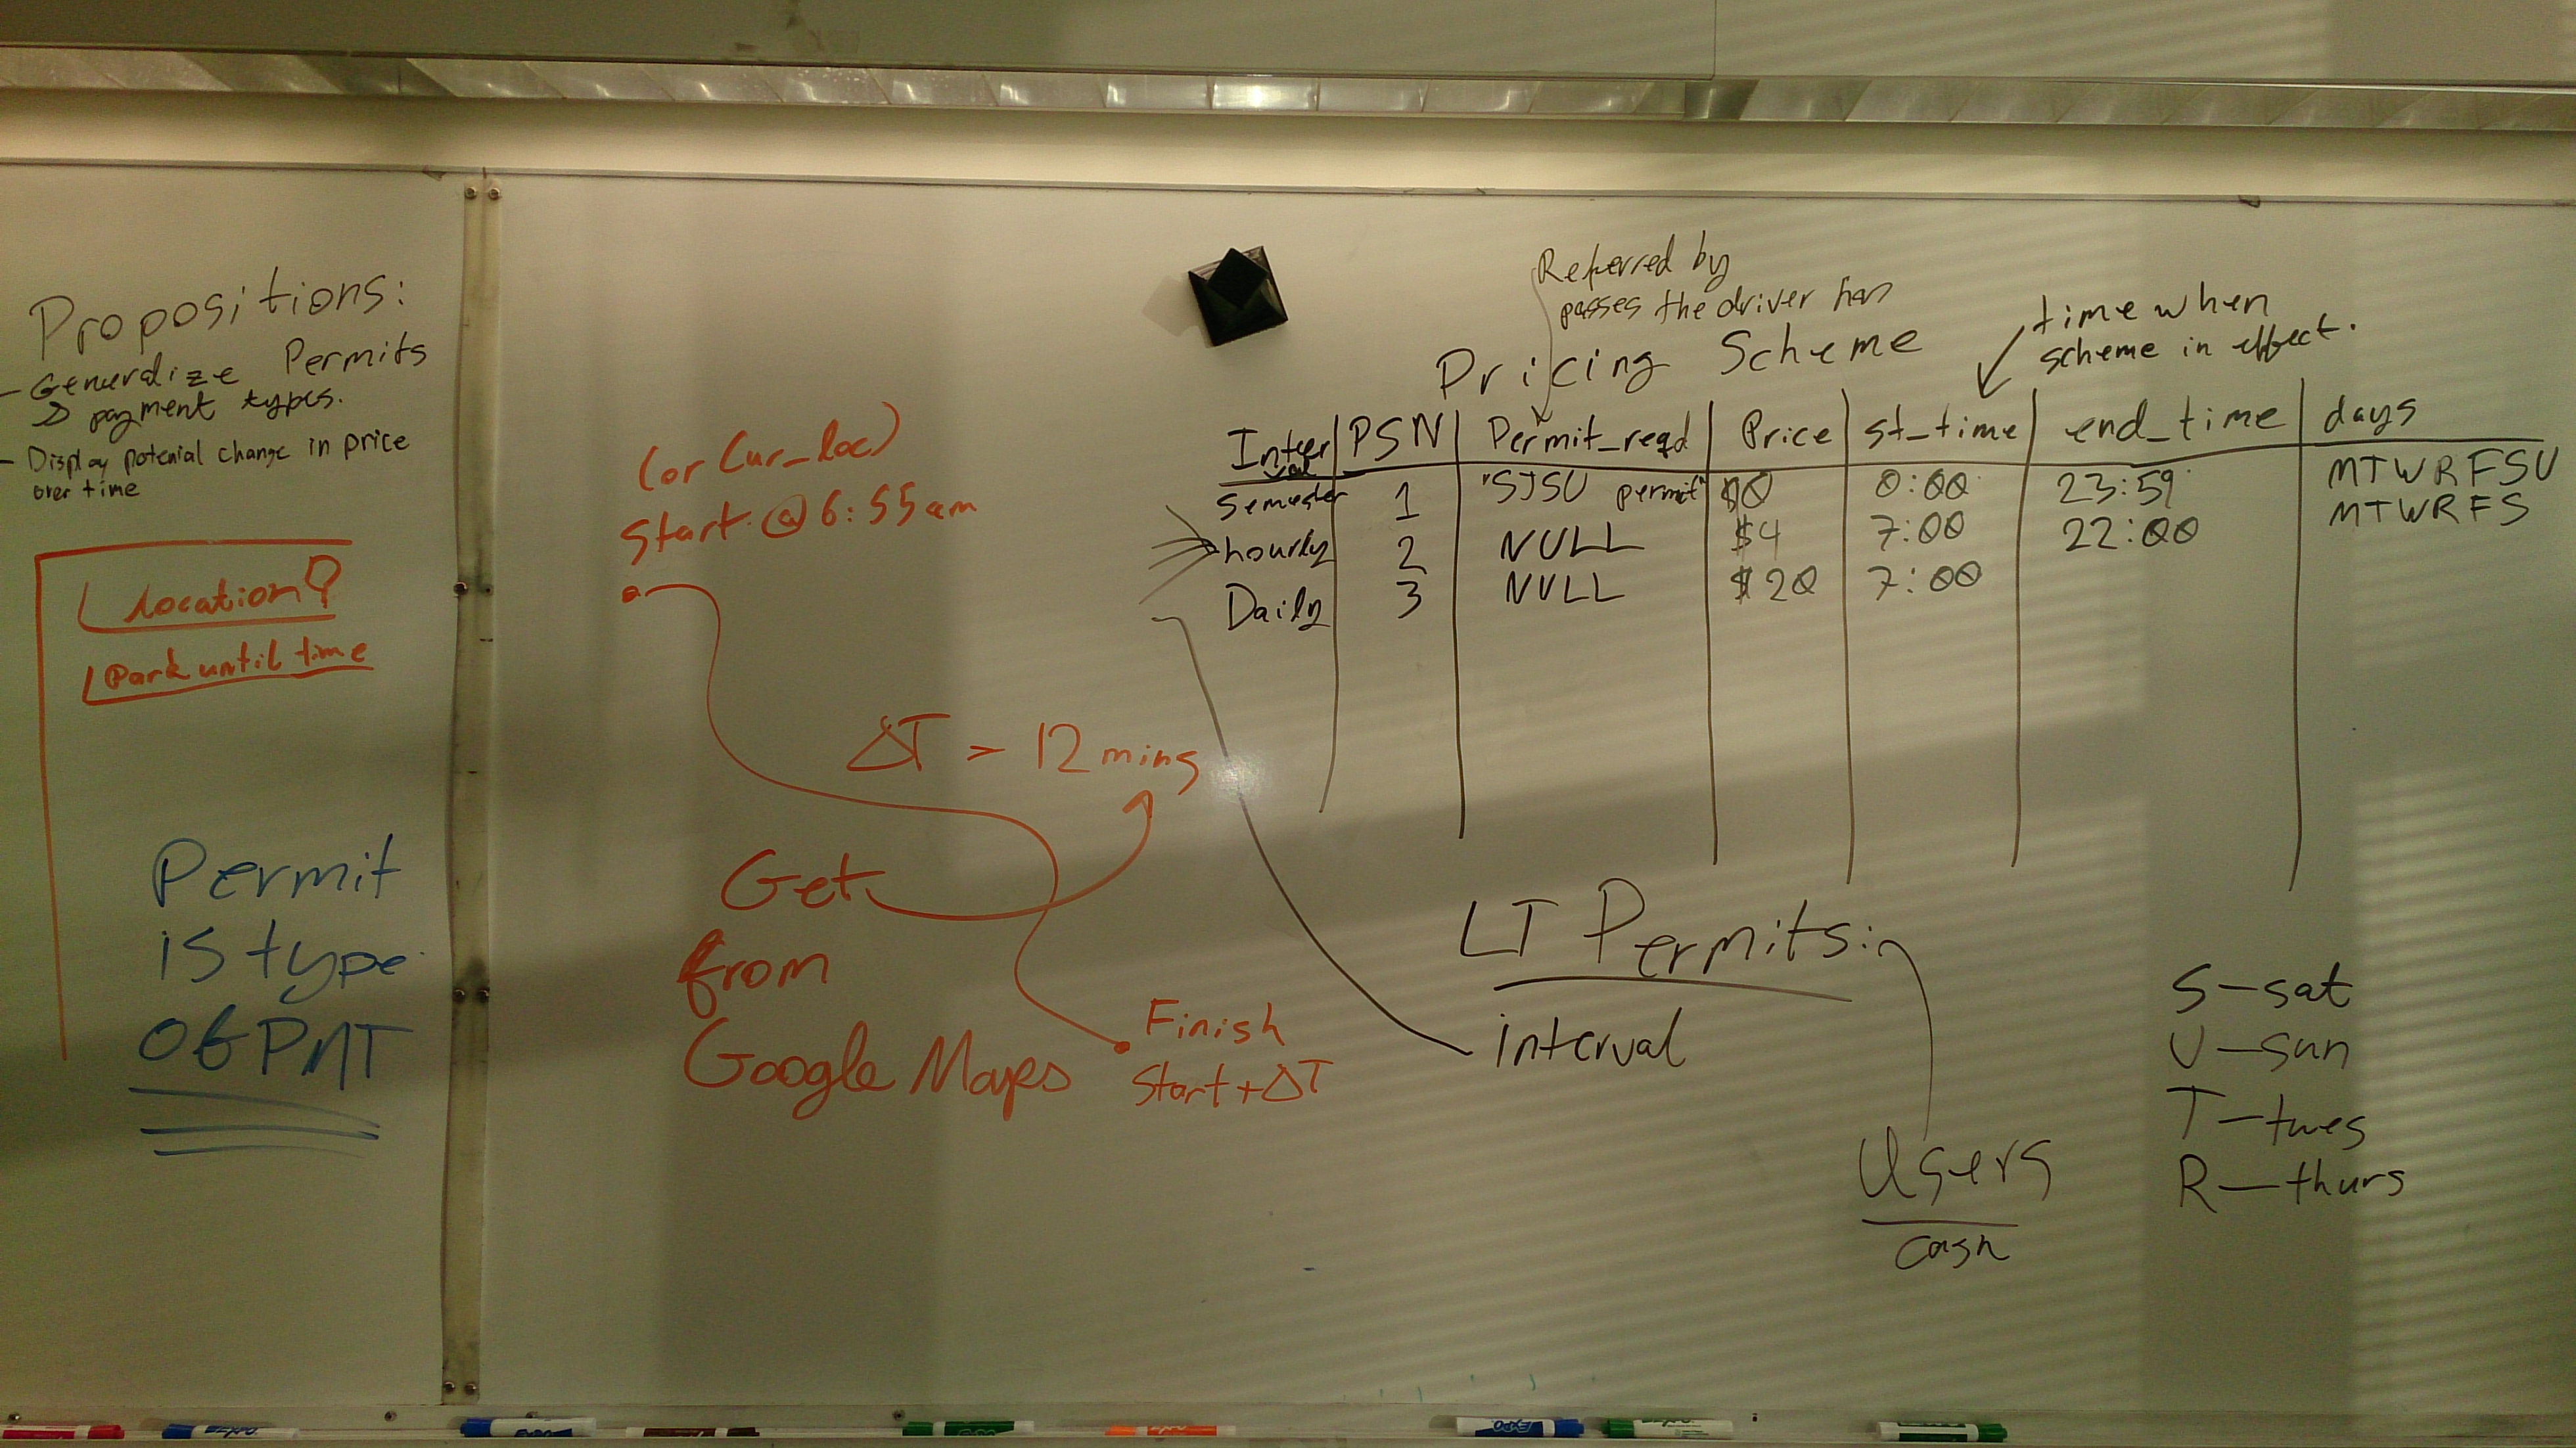 Propositions:
- Generalize Permits
→ payment types.
- Display potenial change in price
over time
Location
Park until time
Permit
is type
of PMT
(or Cur_loc)
Start @ 6:55am
ΔT = 12 mins
Get
from
Google Maps
Finish
Start + ΔT
Referred by
passes the driver has
Pricing Scheme
time when
scheme in effect.
Inter val | PSN | Permit_reqd | Price | st_time | end_time | days
Semester 1 "SJSU permit" $0 0:00 23:59 MTWRFSU
hourly 2 NULL $4 7:00 22:00 MTWRFS
Daily 3 NULL $20 7:00
LT Permits:
interval
Users
cash
S—sat
U—sun
T—tues
R—thurs
EXPO